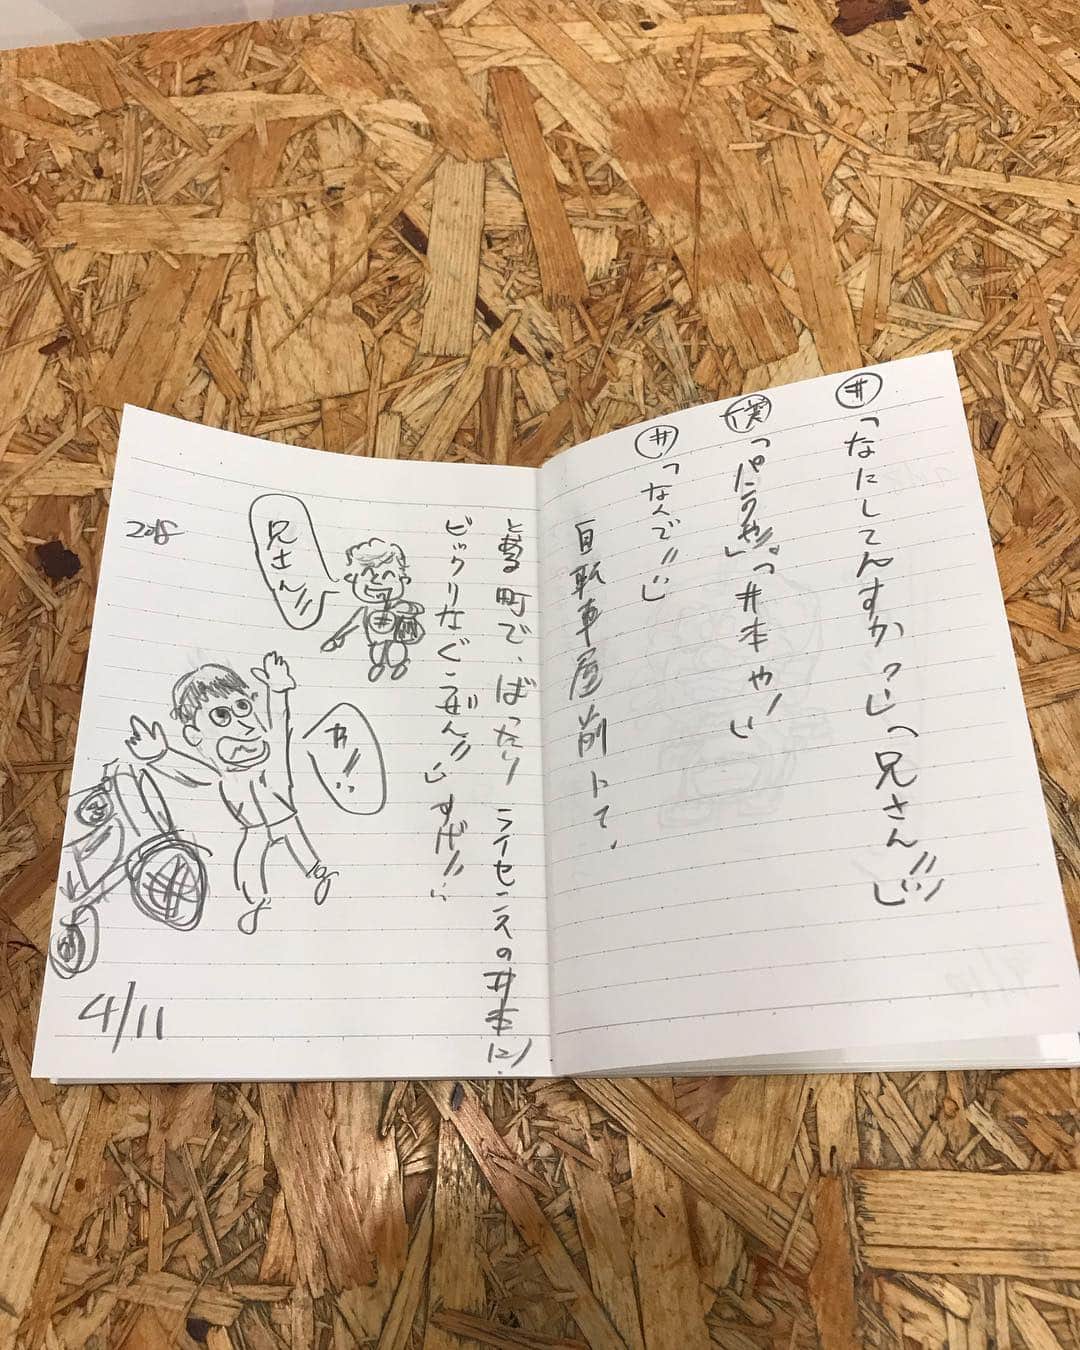 井「なにしてんすか?」「兄さん!!」
僕「パンクや!!」「井本や!」
井「なんで!!」
自転車屋前にて、
と、ある町で、ばったりライセンスの井本に!
ビックリなぐうぜん!!」すげー!!
兄さん!!
井!!
2018
4/11